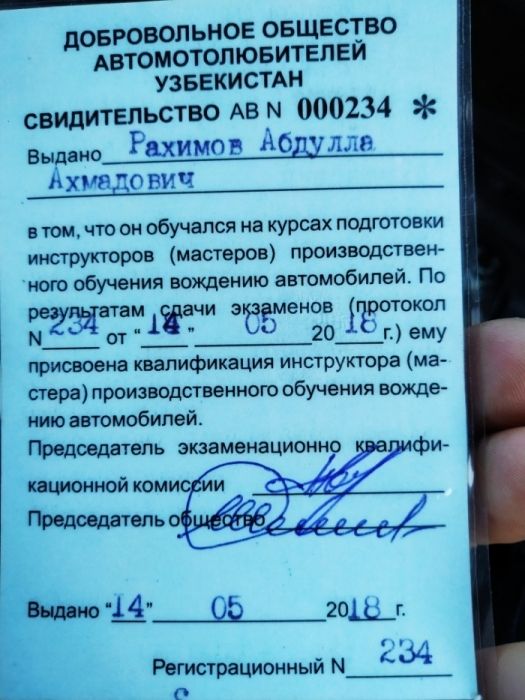 ДОБРОВОЛЬНОЕ ОБЩЕСТВО
АВТОМОТОЛЮБИТЕЛЕЙ
УЗБЕКИСТАН
СВИДЕТЕЛЬСТВО АВ N 000234 *
Выдано Рахимов Абдулла
Ахмадович
в том, что он обучался на курсах подготовки
инструкторов (мастеров) производствен-
ного обучения вождению автомобилей. По
результатам сдачи экзаменов (протокол
N 234 от “14” 05 2018 г.) ему
присвоена квалификация инструктора (ма-
стера) производственного обучения вожде-
нию автомобилей.
Председатель экзаменационно квалифи-
кационной комиссии
Председатель общество
Выдано “14” 05 2018 г.
Регистрационный N 234